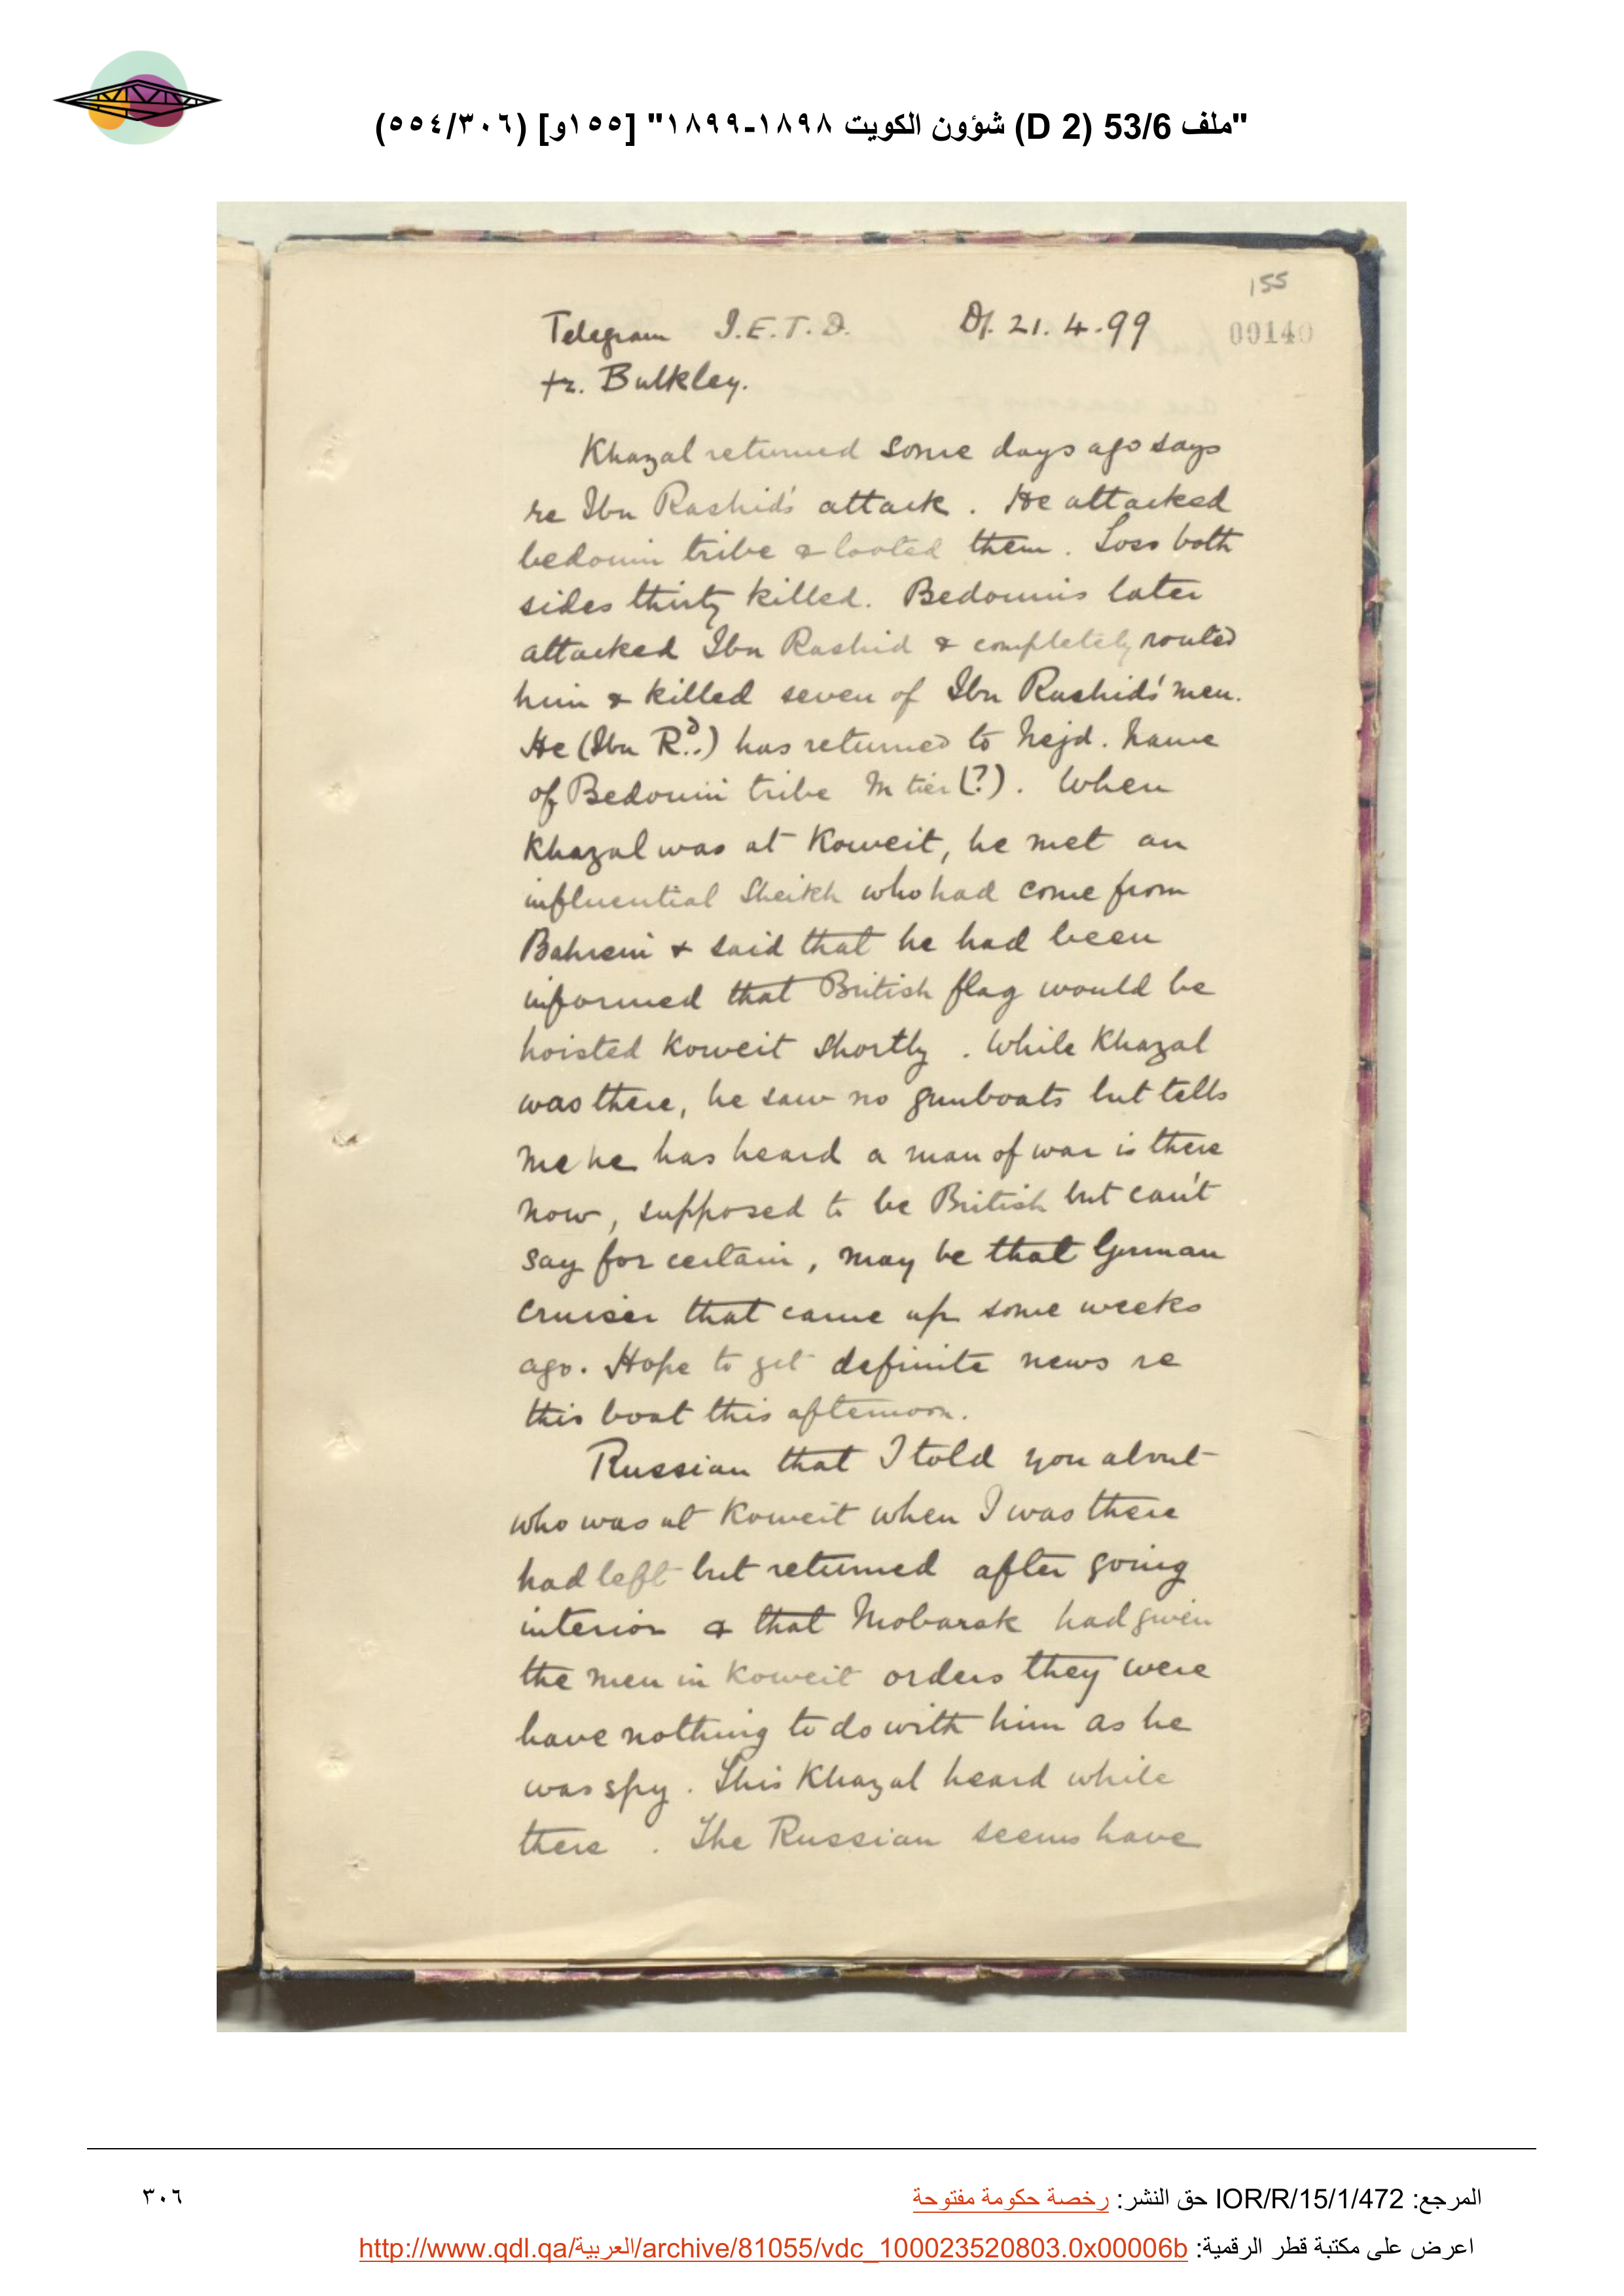 "ملف 53/6 (D 2) شؤون الكويت ١٨٩٨-١٨٩٩" [١٥٥و] (٣٠٦/٥٥٤)
155
Telegram I.E.T.D. D/. 21.4.99
00140
fr. Bulkley.
Khazal returned some days ago says
re Ibn Rashid's attack. He attacked
bedouin tribe & looted them. Loss both
sides thirty killed. Bedouins later
attacked Ibn Rashid & completely routed
him & killed seven of Ibn Rashid's men.
He (Ibn Rd.) has returned to Nejd. Name
of Bedouin tribe Mtier (?). When
Khazal was at Koweit, he met an
influential Sheikh who had come from
Bahrein & said that he had been
informed that British flag would be
hoisted Koweit shortly. While Khazal
was there, he saw no gunboats but tells
me he has heard a man of war is there
now, supposed to be British but can't
say for certain, may be that German
cruiser that came up some weeks
ago. Hope to get definite news re
this boat this afternoon.
Russian that I told you about
who was at Koweit when I was there
had left but returned after going
interior & that Mobarak had given
the men in Koweit orders they were
have nothing to do with him as he
was spy. This Khazal heard while
there. The Russian seems have
المرجع: IOR/R/15/1/472 حق النشر: رخصة حكومة مفتوحة
٣٠٦
اعرض على مكتبة قطر الرقمية: http://www.qdl.qa/العربية/archive/81055/vdc_100023520803.0x00006b